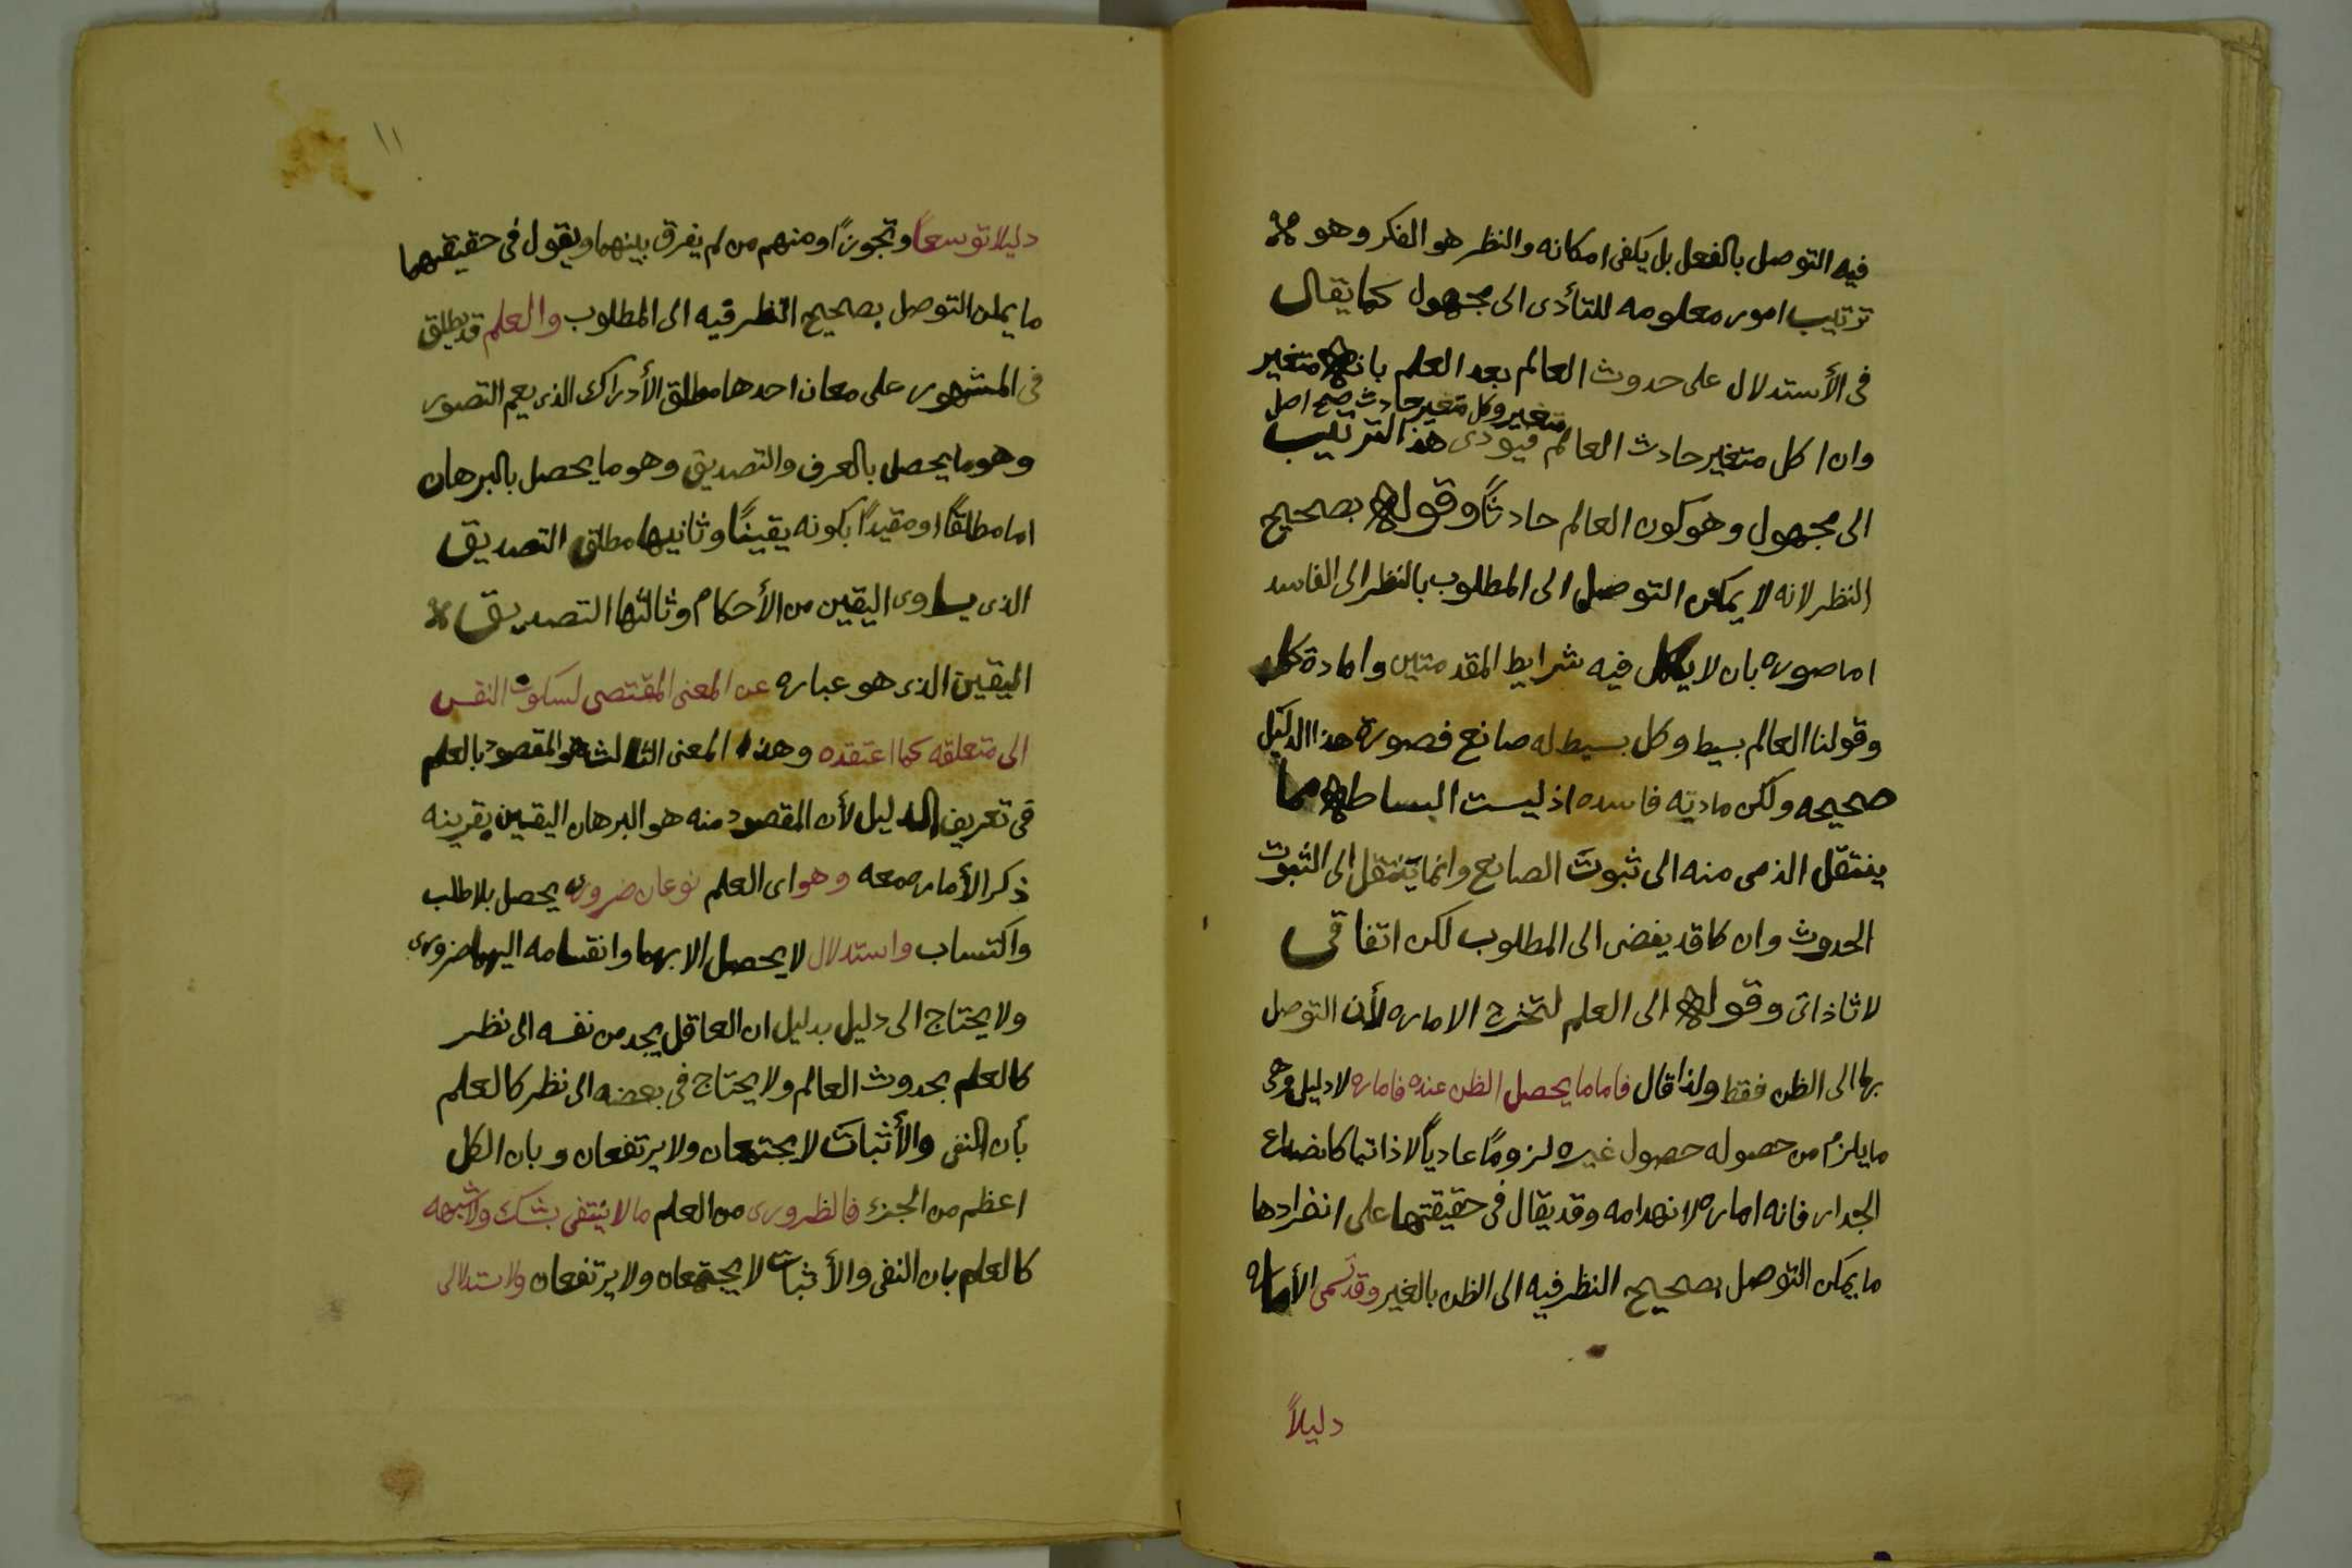 فيه التوصل بالفعل بل يكفى امكانه والنظر هو الفكر وهو
ترتيب امور معلومه للتأدى الى مجهول كما يقال
فى الأستدلال على حدوث العالم بعد العلم بانه متغير
متغير وكل متغير حادث صح اصل
وان ا كل متغير حادث العالم فيودى هذ الترتيب
الى مجهول وهو كون العالم حادثاً وقوله بصحيح
النظر لانه لا يمكن التوصل الى المطلوب بالنظر الى الفاسد
اما صوره بان لا يكمل فيه شرايط المقدمتين واما دة كل
وقولنا العالم بسيط وكل بسيط له صانع فصورة هذا الدليل
صحيحه ولكن مادته فاسده اذ ليست البساطه مما
ينتقل الذمى منه الى ثبوت الصانع وانما ينتقل الى الثبوت
الحدوث وان كا قد يفضى الى المطلوب لكن اتفاقى
لا ثا ذاتى وقوله الى العلم لتخرج الاماره لأن التوصل
بها الى الظن فقط ولذا قال فاما ما يحصل الظن عنده فاماره لا دليل وهى
ما يلزم من حصوله حصول غيره لزوماً عادياً لا ذاتيا كانضداع
الجدار فانه اماره لانهدامه وقد يقال فى حقيقتها على انفرادها
ما يمكن التوصل بصحيح النظر فيه الى الظن بالغير وقد تسمى الأماره
دليلاً
١١
دليلا توسعاً وتجوزاً ومنهم من لم يفرق بينهما ويقول فى حقيقتهما
ما يمكن التوصل بصحيح النظر فيه الى المطلوب والعلم قد يطلق
فى المشهور على معان احدها مطلق الأدراك الذى يعم التصور
وهو ما يحصل بالعرف والتصديق وهو ما يحصل بالبرهان
اما مطلقاً او مقيداً بكونه يقيناً وثانيها مطلق التصديق
الذى يساوى اليقين من الأحكام وثالثها التصديق
اليقين الذى هو عباره عن المعنى المقتصى لسكوت النفس
الى متعلقه كما اعتقده وهذا المعنى الثالث هو المقصود بالعلم
فى تعريف الدليل لأن المقصود منه هو البرهان اليقين بقرينه
ذكر الأماره معه وهو اى العلم نوعان ضرورى يحصل بلا طلب
واكتساب واستدلال لا يحصل الا بهما وانقسامه اليهما ضرورى
ولا يحتاج الى دليل بدليل ان العاقل يجد من نفسه الى نظر
كالعلم بحدوث العالم ولا يحتاج فى بعضه الى نظر كالعلم
بأن النفى والأثبات لا يجتمعان ولا يرتفعان وبان الكل
اعظم من الجزء فالظرورى من العلم ما لا ينتفى بشك ولا شبهه
كالعلم بان النفى والأثبات لا يجتمعان ولا يرتفعان والاستدلالى